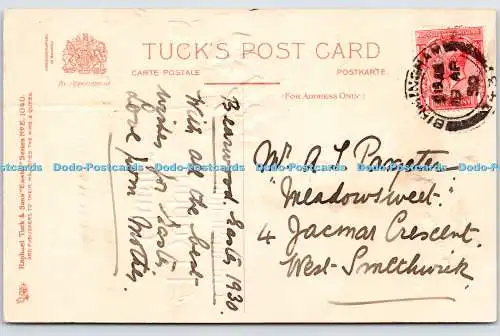 TUCK'S POST CARD
CARTE POSTALE
POSTKARTE.
(For Address Only.)
By Appointment
Raphael Tuck & Sons' "Easter" Series No E. 1040.
ART PUBLISHERS TO THEIR MAJESTIES THE KING & QUEEN.
Bearwood. Easter 1930.
With all the best
wishes for Easter.
Love from Mother.
Mr A L
"Meadowsweet"
4 Jacmar Crescent.
West Smethwick
BIRMINGHAM
AP
30
Dodo-Postcards.com Dodo-Postcards.com Dodo-Postcards.com Dodo-Postcards.com Dodo-Postcards.com